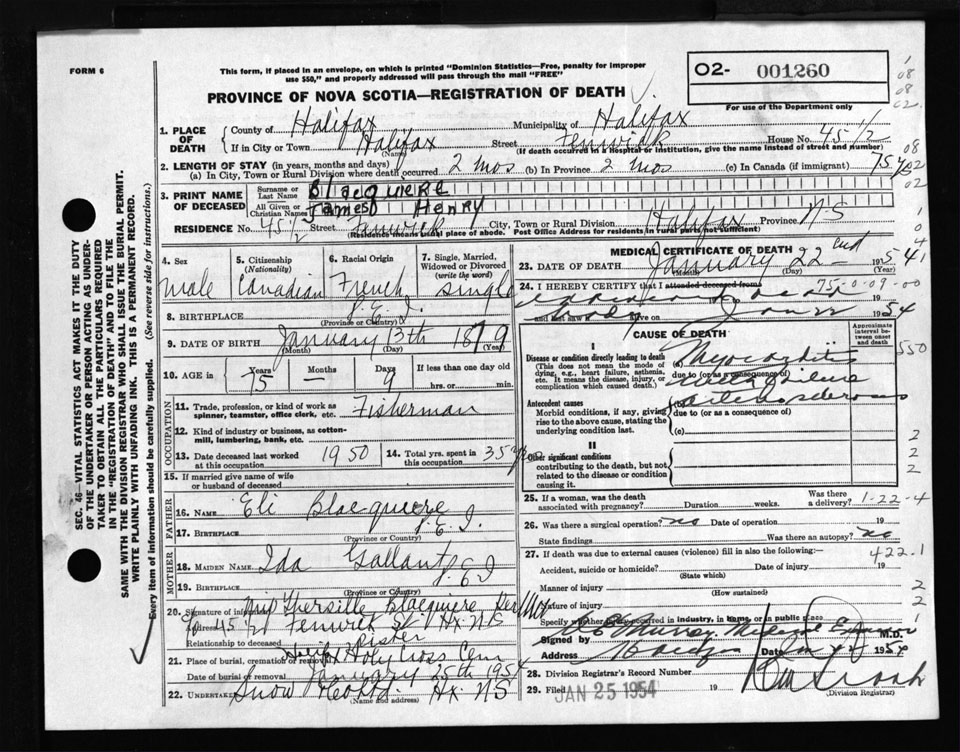 FORM 6
This form, if placed in an envelope, on which is printed "Dominion Statistics—Free, penalty for improper
use $50," and properly addressed will pass through the mail "FREE"
O2- 001260
For use of the Department only
PROVINCE OF NOVA SCOTIA—REGISTRATION OF DEATH
1. PLACE OF DEATH
County of Halifax Municipality of Halifax
If in City or Town Halifax Street Fenwick House No. 45 1/2
(Name) (If death occurred in a hospital or institution, give the name instead of street and number)
2. LENGTH OF STAY (in years, months and days)
(a) In City, Town or Rural Division where death occurred 2 mos (b) In Province 2 mos (c) In Canada (if immigrant) 75 y
3. PRINT NAME OF DECEASED
Surname or Last Name Blacquiere
All Given or Christian Names James Henry
RESIDENCE No. 45 1/2 Street Fenwick City, Town or Rural Division Halifax Province N S
(Residence means usual place of abode. Post Office Address for residents in rural parts not sufficient)
4. Sex
male
5. Citizenship
(Nationality)
Canadian
6. Racial Origin
French
7. Single, Married, Widowed or Divorced
(write the word)
single
8. BIRTHPLACE P.E.I.
(Province or Country)
9. DATE OF BIRTH January 13th 1879
(Month) (Day) (Year)
10. AGE in Years Months Days If less than one day old
75 — 9 hrs. or min.
OCCUPATION
11. Trade, profession, or kind of work as spinner, teamster, office clerk, etc. Fisherman
12. Kind of industry or business, as cotton-mill, lumbering, bank, etc.
13. Date deceased last worked at this occupation 1950
14. Total yrs. spent in this occupation 35 yrs
15. If married give name of wife or husband of deceased
FATHER
16. Name Eli Blacquiere
17. Birthplace P.E.I.
(Province or Country)
MOTHER
18. Maiden Name Ida Gallant
19. Birthplace P.E.I
(Province or Country)
20. Signature of informant Thersille Blacquiere
Address 45 1/2 Fenwick St Hx NS
Relationship to deceased sister
21. Place of burial, cremation or removal Halifax Holy Cross Cem
Date of burial or removal January 25th 1954
22. Undertaker Snow & Co Ltd. Hx. N S
(Name and address)
MEDICAL CERTIFICATE OF DEATH
23. DATE OF DEATH January 22nd 1954
(Month) (Day) (Year)
24. I HEREBY CERTIFY that I attended deceased from
75-0-09-00
and last saw alive on Jan 22 1954
CAUSE OF DEATH
Approximate interval between onset and death
I
Disease or condition directly leading to death
(This does not mean the mode of dying, e.g., heart failure, asthenia, etc. It means the disease, injury, or complication which caused death.)
(a) Myocarditis
due to (or as consequence of)
Antecedent causes
Morbid conditions, if any, giving rise to the above cause, stating the underlying condition last.
due to (or as a consequence of)
(c)
II
Other significant conditions
contributing to the death, but not related to the disease or condition causing it.
25. If a woman, was the death associated with pregnancy? Duration weeks. Was there a delivery? 1-22-4
26. Was there a surgical operation? no Date of operation 19
State findings Was there an autopsy? no
27. If death was due to external causes (violence) fill in also the following:— 422.1
Accident, suicide or homicide? Date of injury 19
(State which)
Manner of injury
(How sustained)
Nature of injury
Specify whether injury occurred in industry, in home, or in public place
Signed by Murray Medical Examiner M.D.
Address Halifax Date Jan 1954
28. Division Registrar's Record Number
29. Filed JAN 25 1954 19
(Division Registrar)
SEC. 46—VITAL STATISTICS ACT MAKES IT THE DUTY
OF THE UNDERTAKER OR PERSON ACTING AS UNDERTAKER
TO OBTAIN ALL THE PARTICULARS REQUIRED
IN THE "REGISTRATION OF DEATH" AND TO FILE THE
SAME WITH THE DIVISION REGISTRAR WHO SHALL ISSUE THE BURIAL PERMIT.
WRITE PLAINLY WITH UNFADING INK. THIS IS A PERMANENT RECORD.
Every item of information should be carefully supplied. (See reverse side for instructions.)